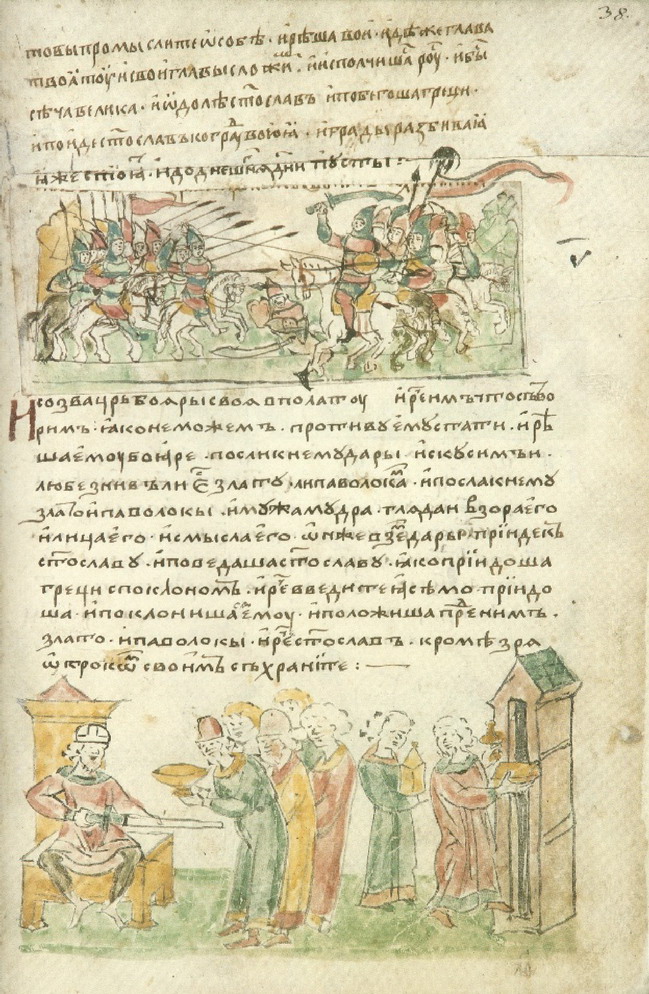 38.
товы промыслите ѡ собѣ · и рѣша вои · идѣже глава
твоѧ тоу и свои главы сложи · и исполчишⷭ роу · и бы
сѣча велика · и ѿдолѣ стославъ и побегоша греци ·
и поиде стославъ ко граⷣ воюꙗ · и грады разбиваꙗ
ꙗже стоѧⷮ · и до днешнѧ дни пусты :
И созва црь бояры своя в полатоу и реⷱ имъ что сътво
римъ · ꙗко не можемъ · противу ему стати · и рѣ
ша ємоу боꙗре · посли к нему дары · искусимъ и ·
любезнив ъли єⷭ злату · ли паволокаⷨ · и посла к нему
злато и паволоки · и мужа мудра · глядаи взора его
и лица его · и смысла его · ѡн же взеⷨ дары · прїиде къ
стославу · и поведаша стославу · ꙗко прїидоша
греци с поклономъ · и реⷱ введите ꙗ сѣмо · прїидо
ша · и поклонишаⷭ ємоу · и положиша преⷣ нимъ ·
злато · и паволоки · и реⷱ стославъ · кромѣ зря
ѡтрокѡⷨ своимъ съхраните :